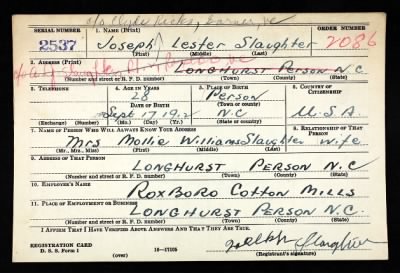 c/o Clyde Hicks,
SERIAL NUMBER 1. NAME (Print) ORDER NUMBER
2537 Joseph Lester Slaughter 2086
(First) (Middle) (Last)
2. ADDRESS (Print)
LONGHURST PERSON N.C.
(Number and street or R. F. D. number) (Town) (County) (State)
3. TELEPHONE 4. AGE IN YEARS 5. PLACE OF BIRTH 6. COUNTRY OF CITIZENSHIP
28 Person
DATE OF BIRTH (Town or county)
Sept 17 1912 N.C U.S.A.
(Exchange) (No.) (Mo.) (Day) (Yr.) (State or country)
7. NAME OF PERSON WHO WILL ALWAYS KNOW YOUR ADDRESS 8. RELATIONSHIP OF THAT PERSON
Mrs Mollie Williams Slaughter wife
(Mr., Mrs., Miss) (First) (Middle) (Last)
9. ADDRESS OF THAT PERSON
LONGHURST PERSON N.C
(Number and street or R. F. D. number) (Town) (County) (State)
10. EMPLOYER'S NAME
ROXBORO COTTON MILLS
11. PLACE OF EMPLOYMENT OR BUSINESS
LONGHURST PERSON N.C.
(Number and street or R. F. D. number) (Town) (County) (State)
I AFFIRM THAT I HAVE VERIFIED ABOVE ANSWERS AND THAT THEY ARE TRUE.
REGISTRATION CARD
D. S. S. Form 1 (over) 16—17105 (Registrant's signature)
Slaughter